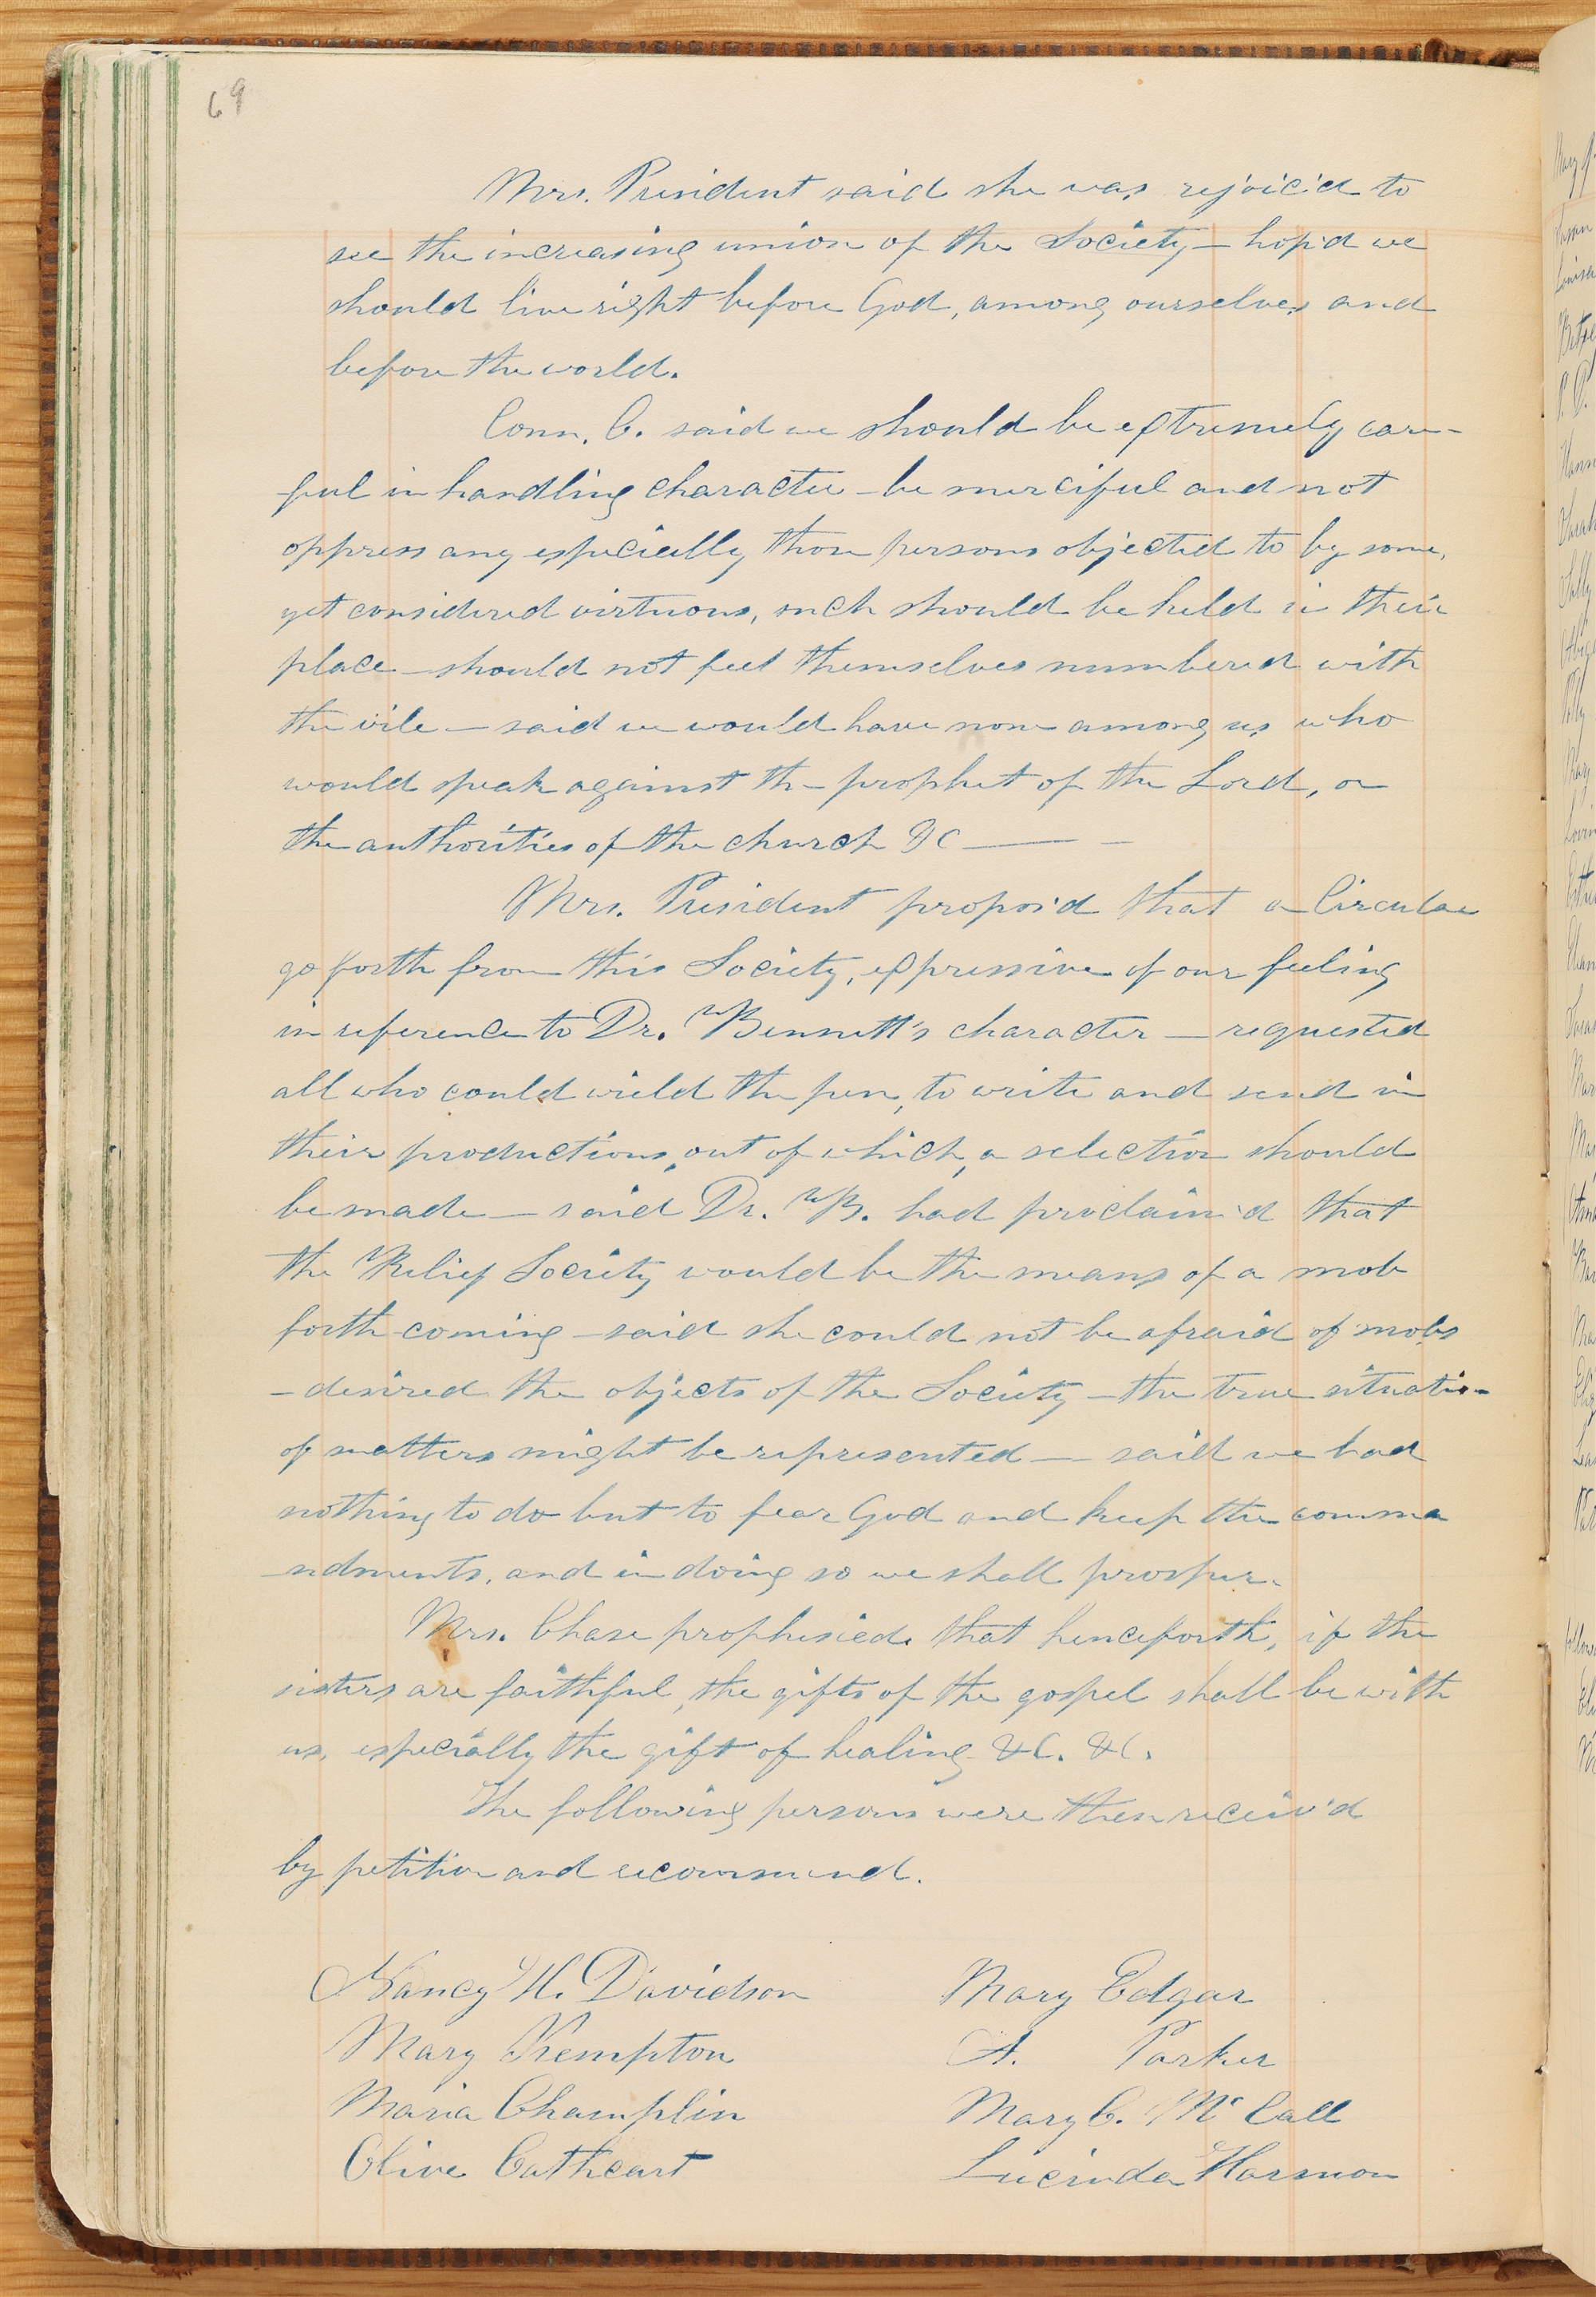 69
Mrs. President said she was rejoic'd to
see the increasing union of the Society — hop'd we
should live right before God, among ourselves and
before the world.
Conn. C. said we should be extremely care-
ful in handling character — be merciful and not
oppress any especially those persons objected to by some,
yet considered virtuous, such should be held in their
place — should not feel themselves numbered with
the vile — said we would have none among us who
would speak against the prophet of the Lord, or
the authorities of the church &C —
Mrs. President propos'd that a Circular
go forth from this Society, expressive of our feeling
in reference to Dr. Bennett's character — requested
all who could wield the pen, to write and send in
their productions, out of which, a selection should
be made — said Dr. B. had proclaim'd that
the Relief Society would be the means of a mob
forth coming — said she could not be afraid of mobs
— desired the objects of the Society — the true situation
of matters might be represented — said we had
nothing to do but to fear God and keep the comma
ndments, and in doing so we shall prosper.
Mrs. Chase prophesied. that henceforth, if the
sisters are faithful, the gifts of the gospel shall be with
us, especially the gift of healing &C. &C.
The following persons were then receiv'd
by petition and recommend.
Nancy H. Davidson Mary Edgar
Mary Kempton A. Parker
Maria Champlin Mary C. Mc Call
Olive Cathcart Lucinda Harmon